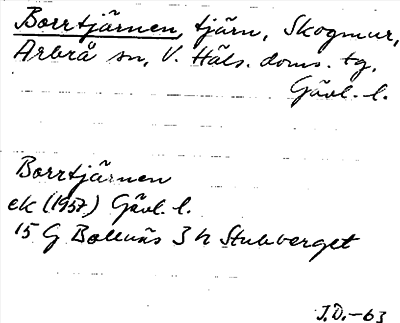 Borrtjärnen, tjärn, Skogmur,
Arbrå sn, V. Häls. doms. tg,
Gävl. l.
Borrtjärnen
ek (1957) Gävl. l.
15 G Bollnäs 3 h Stubberget
J.D.-63